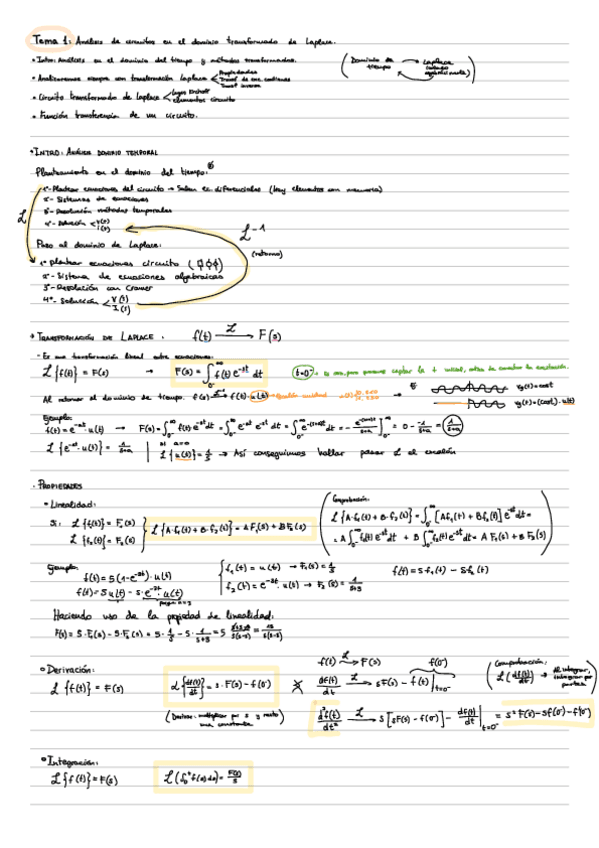 Tema 1: Análisis de circuitos en el dominio transformado de Laplace.
• Intro: Análisis en el dominio del tiempo y métodos transformados.
(Dominio de tiempo → Laplace
• Analizaremos siempre con transformación Laplace < Propiedades
Transf inversa
• Circuito transformado de Laplace < Leyes Kirchoff
elementos circuito
• Función transferencia de un circuito.
• INTRO: ANÁLISIS DOMINIO TEMPORAL
Planteamiento en el dominio del tiempo:
1º- Plantear ecuaciones del circuito → Salen ec. diferenciales (hay elementos con memoria)
2º- Sistemas de ecuaciones
3º- Resolución métodos temporales
4º- Solución < v(t)
i(t)
ℒ
ℒ⁻¹
(retorno)
Paso al dominio de Laplace:
1º Plantear ecuaciones circuito
2º- Sistema de ecuaciones algebraicas
3º- Resolución con Cramer
4º- Solución < V(s)
I(s)
• TRANSFORMACIÓN DE LAPLACE: f(t) ℒ→ F(s)
- Es una transformación lineal entre ecuaciones:
ℒ{f(t)} = F(s) → F(s) = ∫₀-^∞ f(t) e^-st dt
Al retornar al dominio de tiempo: F(s) → f(t)·u(t) → Escalón unidad
vg(t) = cost
vg(t) = (cost)·u(t)
Ejemplo:
f(t) = e^-at·u(t) → F(s) = ∫₀^∞ f(t) e^-st dt = ∫₀^∞ e^-at e^-st dt = ∫₀^∞ e^-(s+a)t dt = - e^-(s+a)t/(s+a) ]₀^∞ = 0 - -1/(s+a) = 1/(s+a)
ℒ{e^-at·u(t)} = 1/(s+a) | si a=0
ℒ{u(t)} = 1/s → Así conseguimos hallar pasar ℒ el escalón
• PROPIEDADES
• Linealidad:
Si: ℒ{f₁(t)} = F₁(s)
ℒ{f₂(t)} = F₂(s)
ℒ{A·f₁(t) + B·f₂(t)} = A F₁(s) + B F₂(s)
Comprobación:
ℒ{A·f₁(t) + B·f₂(t)} = ∫₀-^∞ [Af₁(t) + Bf₂(t)] e^-st dt =
= A ∫₀-^∞ f₁(t) e^-st dt + B ∫₀-^∞ f₂(t) e^-st dt = A F₁(s) + B F₂(s)
Ejemplo:
f(t) = 5(1-e^-3t)·u(t)
f(t) = 5u(t) - 5·e^-3t·u(t)
f₁(t) = u(t) → F₁(s) = 1/s
f₂(t) = e^-3t·u(t) → F₂(s) = 1/(s+3)
f(t) = 5f₁(t) - 5f₂(t)
Haciendo uso de la propiedad de linealidad:
F(s) = 5·F₁(s) - 5·F₂(s) = 5·1/s - 5·1/(s+3)
• Derivación:
ℒ{f(t)} = F(s)
ℒ{df(t)/dt} = s·F(s) - f(0-)
(Derivar: multiplicar por s y resto una constante)
f(t) ℒ→ F(s) f(0-)
df(t)/dt ℒ→ sF(s) - f(t)|t=0-
d²f(t)/dt² ℒ→ s[sF(s) - f(0-)] - df(t)/dt|t=0- = s²F(s) - sf(0-) - f'(0-)
(Comprobación: ℒ(df(t)/dt) → Al integrar, integrar por partes)
• Integración:
ℒ{f(t)} = F(s)
ℒ(∫₀^t f(s)ds) = F(s)/s